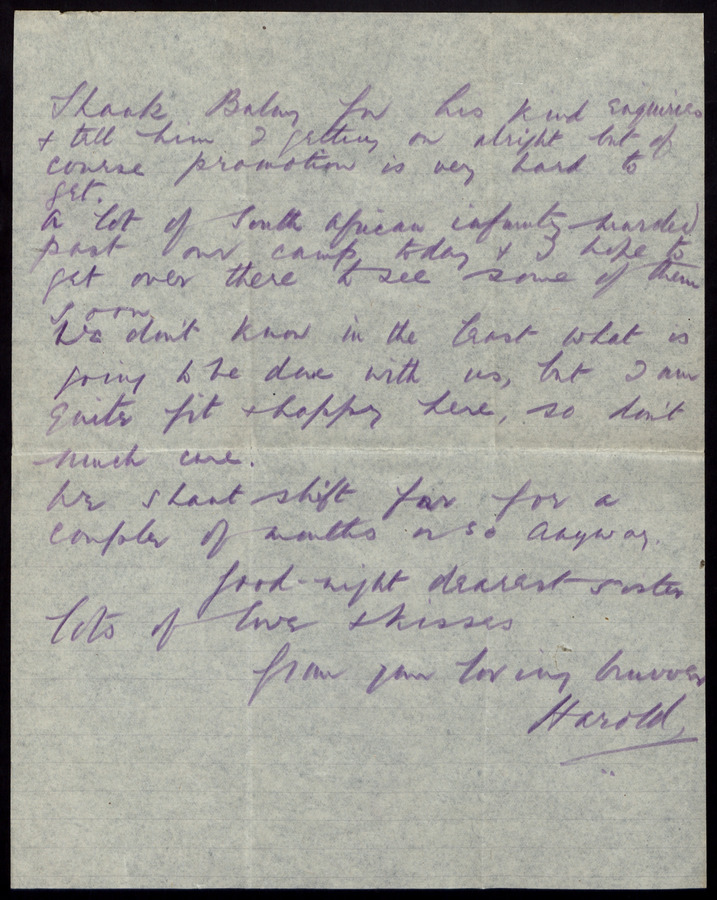 Thank Balmy for his kind enquiries
& tell him I getting on alright but of
course promotion is very hard to
get.
A lot of South African infantry marched
past our camp today & I hope to
get over there to see some of them
soon
We don't know in the least what is
going to be done with us, but I am
quite fit & happy here, so don't
much care.
We shant shift far for a
couple of months or so anyway.
Good-night dearest sister
lots of love & kisses
from your loving bruvver
Harold,